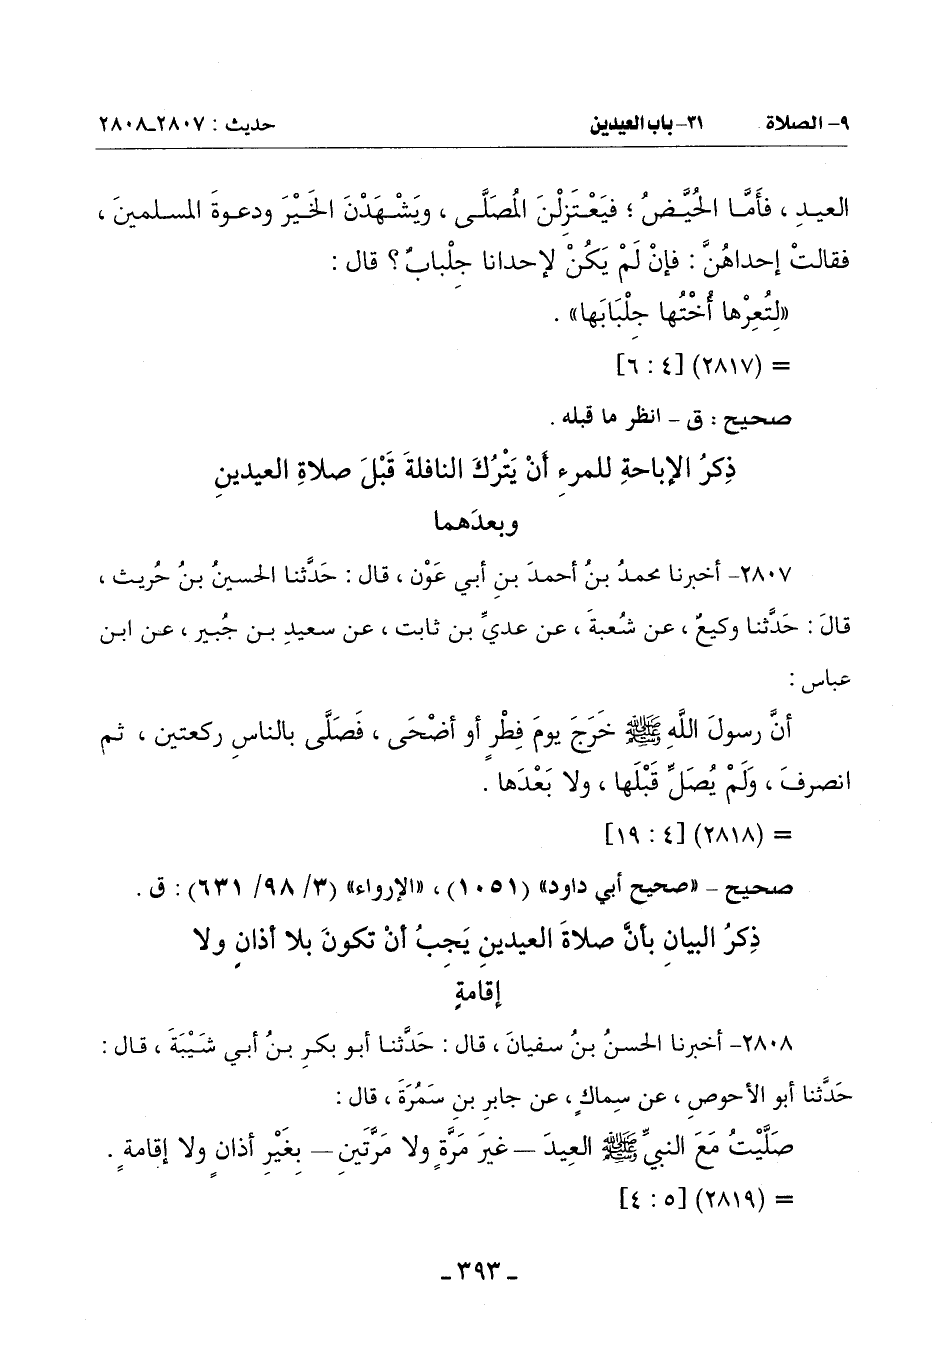 ٩- الصلاة ٣١- باب العيدين حديث : ٢٨٠٧-٢٨٠٨
العيدِ ، فأَمَّا الحُيَّضُ ؛ فيَعْتَزِلْنَ المُصَلَّى ، ويَشْهَدْنَ الخَيْرَ ودعوةَ المسلمينَ ،
فقالتْ إحداهُنَّ : فإنْ لَمْ يَكُنْ لإحدانا جِلْبابٌ ؟ قال :
«لِتُعِرْها أُخْتُها جِلْبَابَها» .
= (٢٨١٧) [٤ : ٦]
صحيح : ق - انظر ما قبله .
ذِكرُ الإباحةِ للمرءِ أَنْ يَتْرُكَ النافلةَ قَبْلَ صلاةِ العيدينِ
وبعدَهما
٢٨٠٧- أخبرنا محمدُ بنُ أحمدَ بنِ أبي عَوْن ، قال : حَدَّثنا الحسينُ بنُ حُريث ،
قالَ : حَدَّثنا وكيعٌ ، عن شُعبةَ ، عن عديِّ بن ثابت ، عن سعيدِ بن جُبير ، عن ابن
عباس :
أنَّ رسولَ اللَّهِ ﷺ خَرَجَ يومَ فِطْرٍ أو أضْحَى ، فَصَلَّى بالناسِ ركعتين ، ثم
انصرفَ ، وَلَمْ يُصَلِّ قَبْلَها ، ولا بَعْدَها .
= (٢٨١٨) [٤ : ١٩]
صحيح - «صحيح أبي داود» (١٠٥١) ، «الإرواء» (٣/ ٩٨/ ٦٣١) : ق .
ذِكرُ البيانِ بأنَّ صلاةَ العيدينِ يَجِبُ أنْ تكونَ بلا أذانٍ ولا
إقامةٍ
٢٨٠٨- أخبرنا الحسنُ بنُ سفيانَ ، قال : حَدَّثنا أبو بكرِ بنُ أبي شَيْبَةَ ، قال :
حَدَّثنا أبو الأحوصِ ، عن سِماكٍ ، عن جابرِ بنِ سَمُرَةَ ، قال :
صَلَّيْتُ مَعَ النبيِّ ﷺ العِيدَ – غيرَ مَرَّةٍ ولا مَرَّتَينِ – بِغَيْرِ أذانٍ ولا إقامةٍ .
= (٢٨١٩) [٥ : ٤]
- ٣٩٣ -